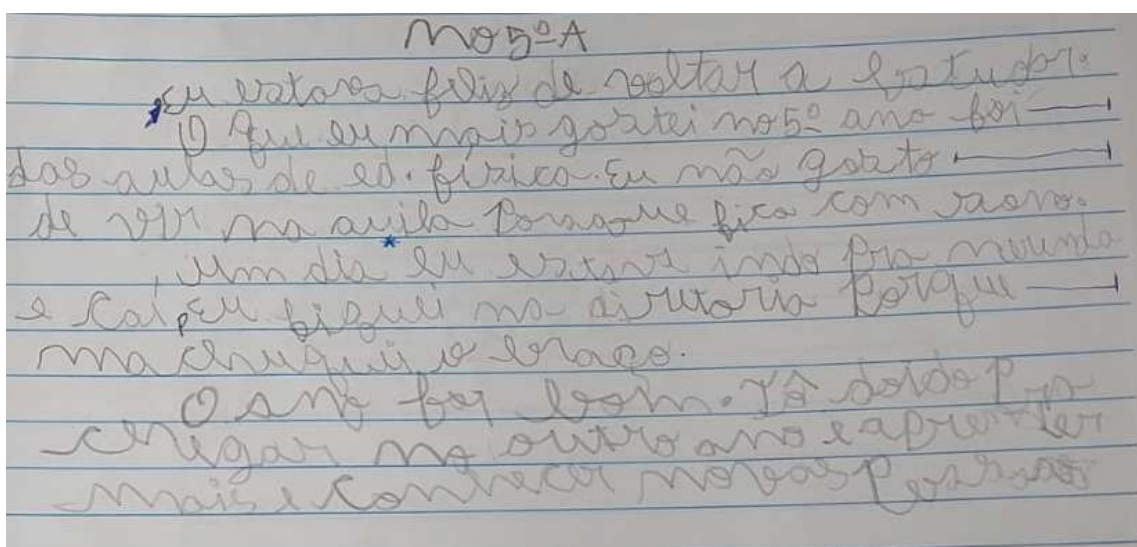 no 5º A
Eu estava feliz de voltar a estudar.
O que eu mais gostei no 5º ano foi
das aulas de ed. física. Eu não gosto
de vir na aula porque fica com sono.
um dia eu estava indo pra
e caí, eu fiquei na diretoria porque
machuquei o braço.
O ano foi bom. Tô doido pra
chegar no outro ano e aprender
mais e conhecer novas pessoas